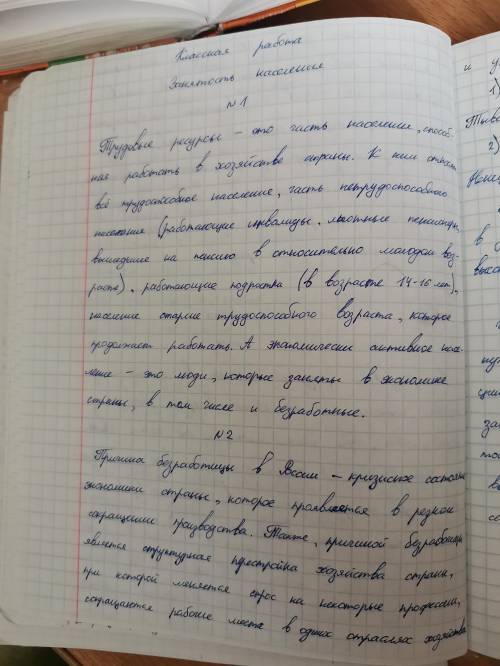 Классная работа
Занятость населения
N1
Трудовые ресурсы – это часть население, способ-
ная работать в хозяйстве страны. К ним относ
всё трудоспособное население, часть нетрудоспособного
населения (работающие инвалиды, льготные пенсионеры,
вышедшие на пенсию в относительно молодом воз-
расте), работающие подростка (в возрасте 14-16 лет),
население старше трудоспособного возраста, которое
продолжает работать. А экономически активное насе-
ление – это люди, которые заняты в экономике
страны, в том числе и безработные.
N2
Причина безработицы в России – кризисное состояние
экономики страны, которое проявляется в резком
сокращении производства. Также, причиной безработицы
является структурная перестройка хозяйства страны,
при которой меняется спрос на некоторые профессии,
сокращаются рабочие места в одних отраслях хозяйства
и у
1)
Тыва
2)
Ненец
в
высо
нут
зак
то
в
со